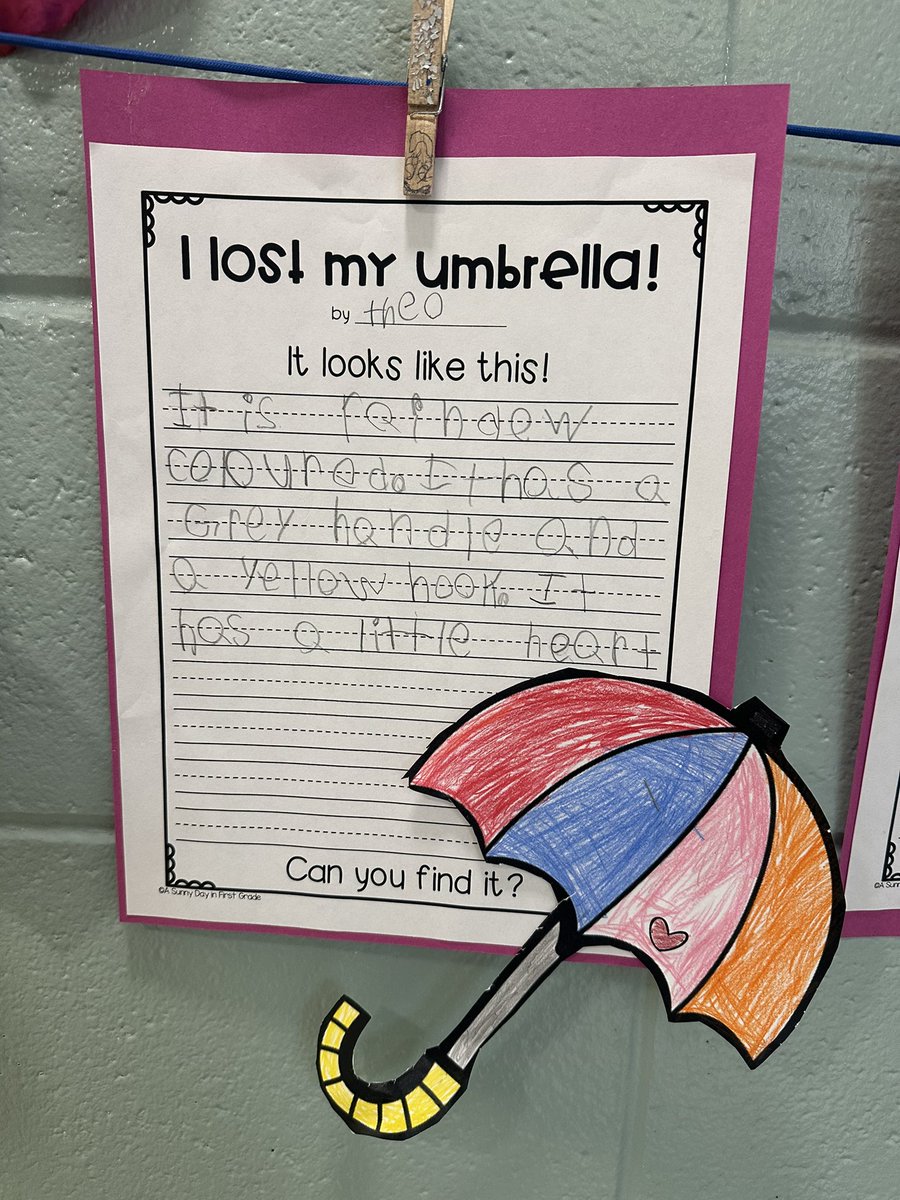 I lost my umbrella!
by theo
It looks like this!
It is raindew
coloured. It has a
Grey handle and
a yellow hook. It
has a little heart
Can you find it?
©A Sunny Day in First Grade